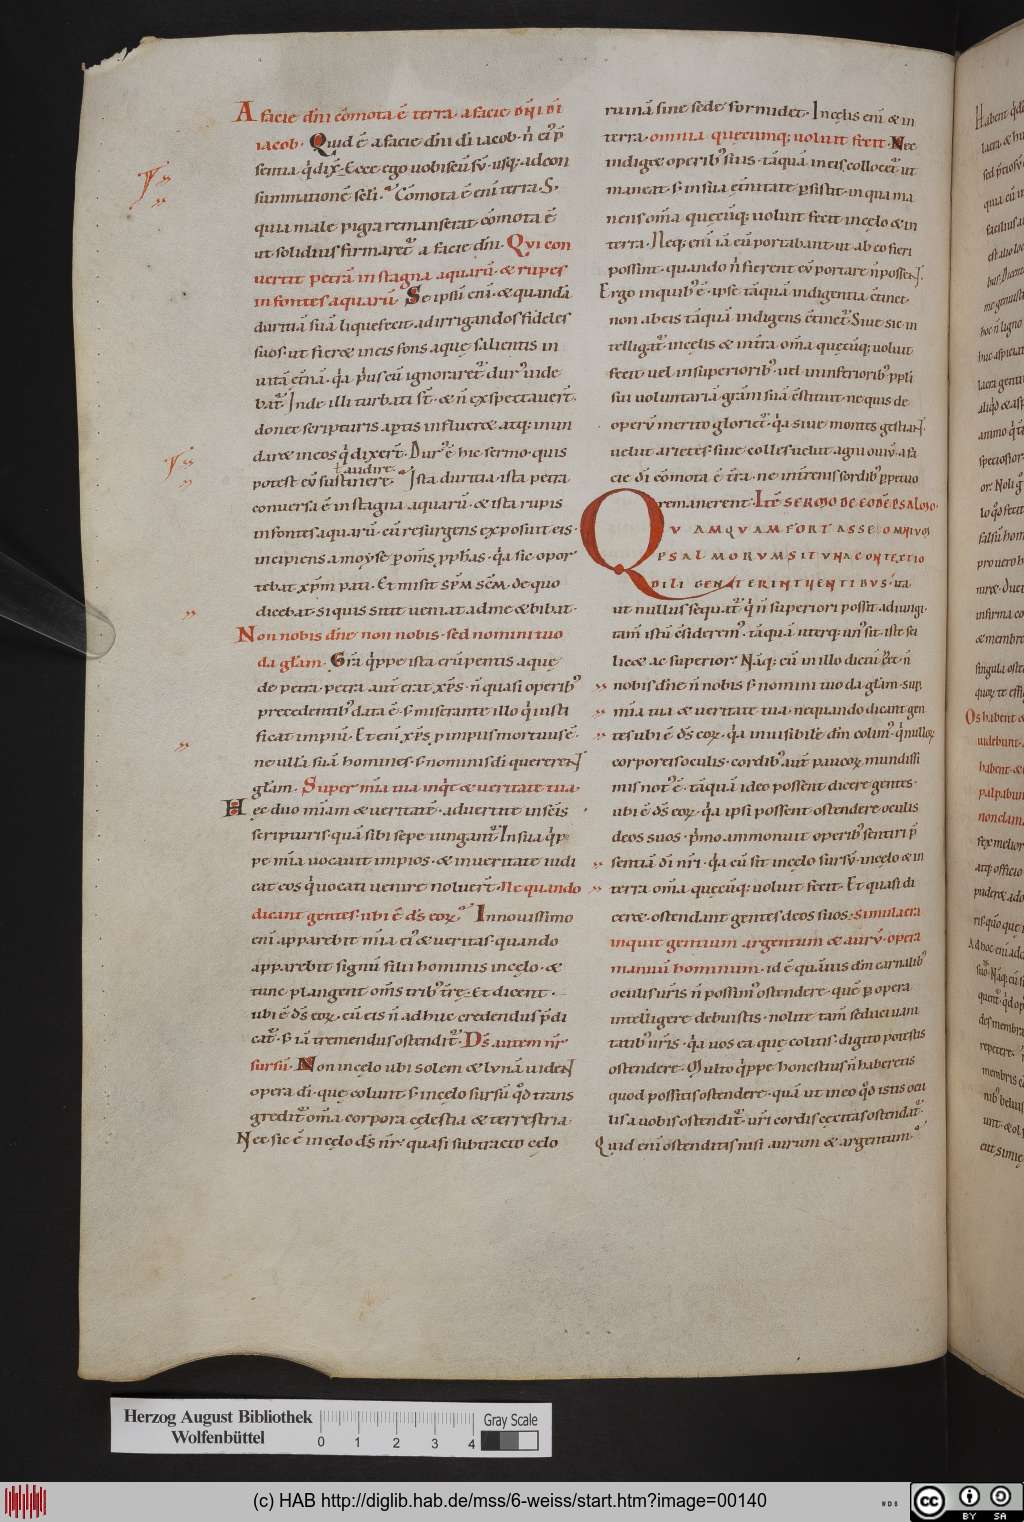 A facie dn̄i cōmota ē terra a facie dn̄i dī
iacob. Quid ē a facie dn̄i dī iacob. n̄ ei' p̄
sentia q̇ dix̄. Ecce ego uobiscū sū. usq; ad con
summationē sc̄li. Cōmota ē enī terra. S;
quia male pigra remanserat cōmota ē
ut solidius firmaret̄ a facie dn̄i. Qui con
uertit petrā in stagna aquarū. & rupes
in fontes aquarū. Se ipsū enī. & quandā
duritiā suā liquefecit. ad irrigandos fideles
suos. ut fier& in eis fons aquę salientis in
uitā etnā. q̇a p̓us cū ignoraret̄ dur' uide
bat̄. Inde illi turbati st̄. & n̄ exspectauer̄t.
donec scripturis aptis influer& atq; inun
dar& in eos q̇ dixer̄t. Dur' ē hic sermo. quis
audire
potest eū sustinere. Ista duritia. ista petra
conuersa ē in stagna aquarū. & ista rupis
in fontes aquarū. cū resurgens exposuit eis.
incipiens a moyse p om̄s pph̄as. q̇a sic opor
tebat xp̄m pati. Et misit sp̄m sc̄m. de quo
dicebat. si quis sitit ueniat ad me & bibat.
Non nobis dn̄e non nobis. sed nomini tuo
da gl̄am. Gr̄a q̇ppe ista erūpentis aquę
de petra. petra aut̄ erat xp̄s. n̄ quasi operib'
precedentib' data ē. s; miserante illo q̇ iusti
ficat impiū. Et enī xp̄s p impiis mortuus ē.
ne ullā suā homines. s; nominis dī quererent
gl̄am. Super mīa tua inq̇t & ueritate tua.
Hęc duo mīam & ueritatē. aduertite in sc̄is
scripturis. quā sibi sepe iungant̄. In sua q̇p
pe mīa uocauit impios. & in ueritate iudi
cat eos q̇ uocati uenire noluer̄t. Ne quando
dicant gentes. ubi ē ds̄ eoꝝ. In nouissimo
enī apparebit mīa ei' & ueritas. quando
apparebit signū filii hominis in cęlo. &
tunc plangent om̄s trib' t̄rę. Et dicent.
ubi ē ds̄ eoꝝ. cū eis n̄ adhuc credendus p̄di
cat̄. s; iā tremendus ostendit̄. Ds̄ autem nr̄
sursū. Non in cęlo ubi solem & lunā uident
opera dī. que colunt. s; in cęlo sursū q̇d trans
gredit̄ om̄a corpora cęlestia & terrestria.
Nec sic ē in cęlo ds̄ nr̄. quasi subtracto cęlo
ruinā sine sede formidet. In cęlis enī & in
terra. omnia quęcumq; uoluit fecit. Nec
indig& operib' suis. tāquā in eis collocet̄ ut
maneat. s; in sua et̄nitate p̱sistit. in qua ma
nens om̄a quęcūq; uoluit fecit in cęlo & in
terra. Neq; enī iā eū portabant. ut ab eo fieri
possint. quando n̄ fierent eū portare n̄ possent.
Ergo in quib' ē. ipse tāquā indigentia c̄tinet.
non ab eis tāquā indigens c̄tinet̄. Siue sic in
telligat̄. in cęlis & in t̄ra om̄a quęcūq; uoluit
fecit. uel in superiorib'. uel in inferiorib' ppli
sui uoluntariā grām suā c̄stituit. ne quis de
operū merito gloriet̄. q̇a siue montes gestiant
uelut arietes. siue colles uelut agni ouiū. a fa
cie dī cōmota ē t̄ra. ne in t̄renis sordib' p̱petuo
remanerent. ITĒ SERMO DE EODĒ PSALMO.
QUAMQUAM FORTASSE OMNIUM
PSALMORUM SIT UNA CONTEXTIO
DILIGENTER INTUENTIBUS. ita
ut nullus sequat̄ q̇ n̄ superiori possit adiungi.
tam̄ istū c̄siderem'. tāquā uterq; un' sit. iste sci
lic& ac superior. Nāq; cū in illo dictū eēt. n̄
nobis dn̄e n̄ nobis s; nomini tuo da gl̄am. sup̱
mīa tua & ueritate tua. nequando dicant gen
tes ubi ē ds̄ eoꝝ. q̇a inuisibilē dm̄ colim'. q̇ nulloꝝ
corporeis oculis. cordib' aut̄ paucoꝝ mundissi
mis not' ē. tāquā ideo possent dicere gentes.
ubi ē ds̄ eoꝝ. q̇a ipsi possent ostendere oculis
deos suos. p̓mo ammonuit operib' sentiri p̄
sentiā dī nr̄i. q̇a cū sit in cęlo sursū. in cęlo & in
terra om̄a quęcūq; uoluit fecit. Et quasi di
cer&. ostendant gentes deos suos. simulacra
inquit gentium argentum & aurū. opera
manuū hominum. id ē quāuis dm̄ carnalib'
oculis ur̄is n̄ possim' ostendere. quē p̱ opera
intelligere debuistis. nolite tam̄ seduci uani
tatib' ur̄is. q̇a uos ea que colitis. digito potestis
ostendere. Multo q̇ppe honestius n̄ haberetis
quod possetis ostendere. quā ut in eo q̇d istis ocu
lis a uobis ostendit̄. ur̄i cordis cęcitas ostendat̄.
Quid enī ostenditis nisi aurum & argentum.
Herzog August Bibliothek
Wolfenbüttel
0 1 2 3 4
Gray Scale
(c) HAB http://diglib.hab.de/mss/6-weiss/start.htm?image=00140
cc BY SA